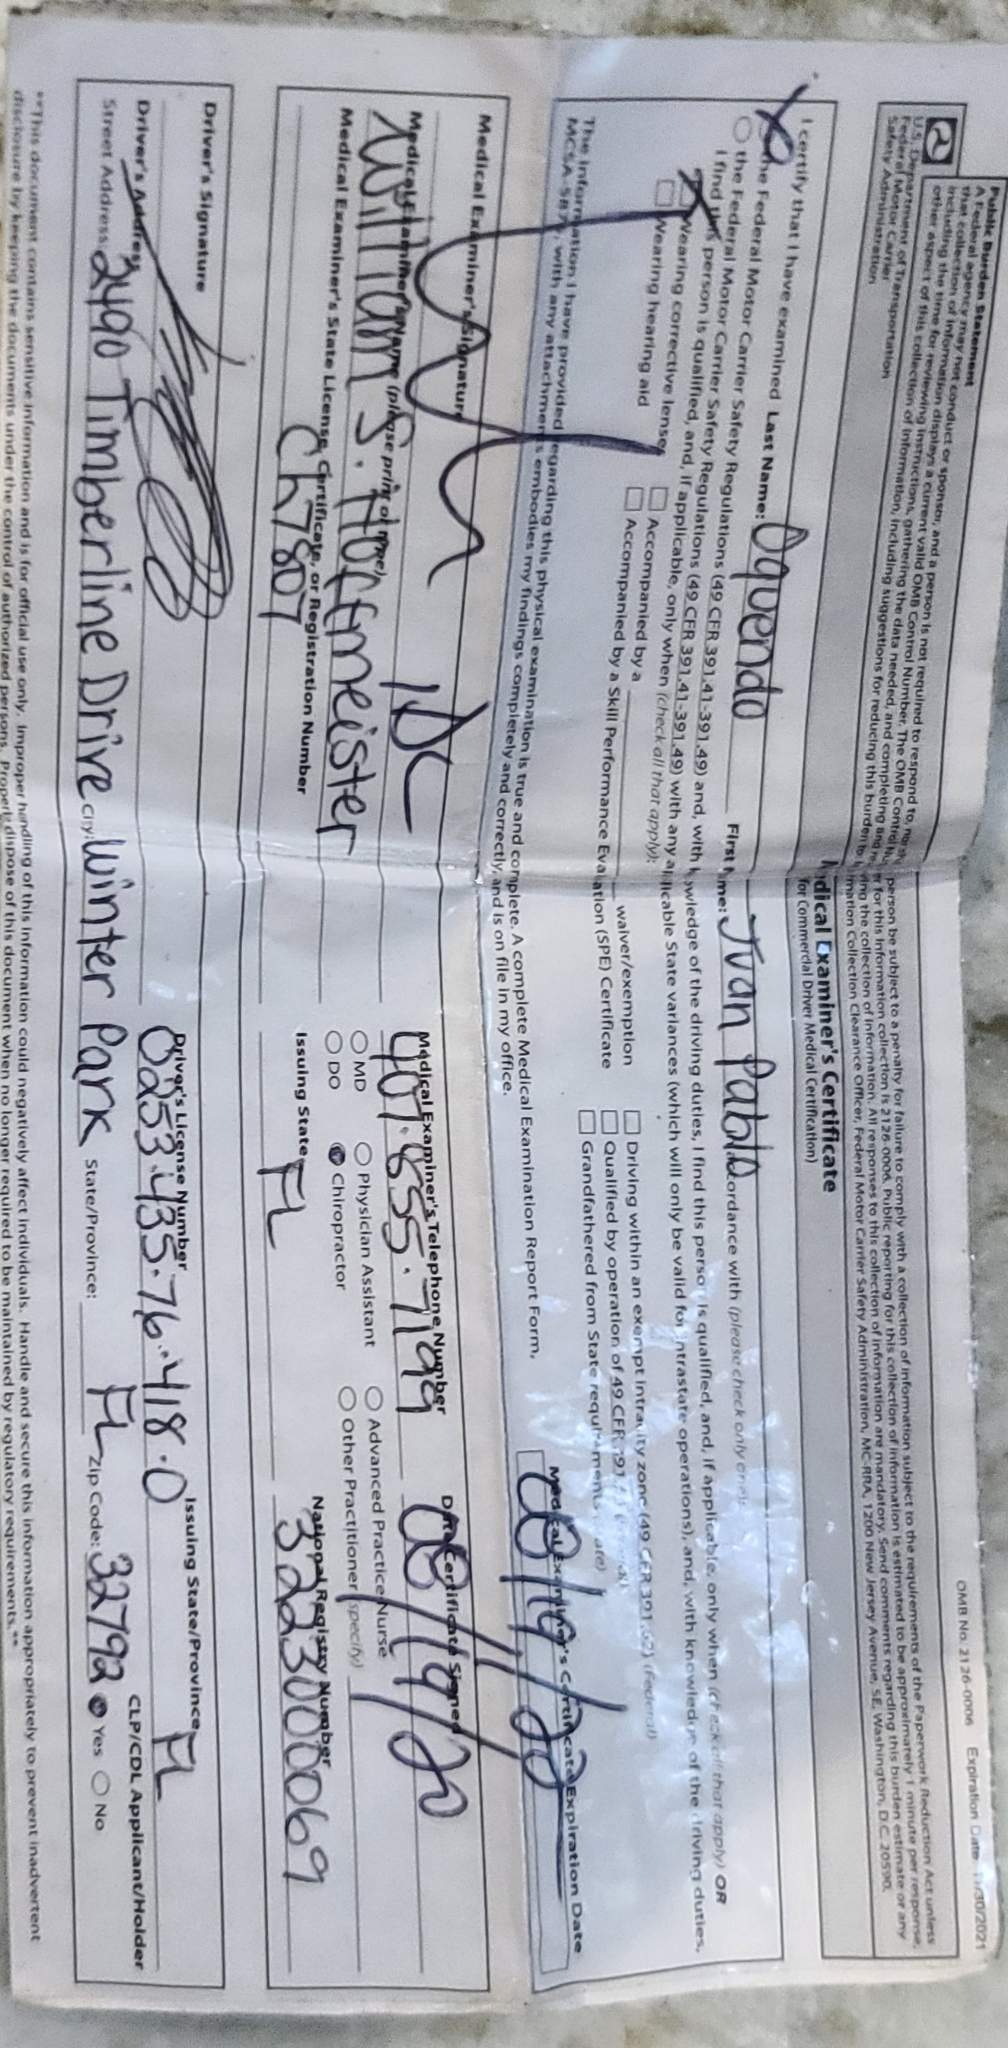 Public Burden Statement
OMB No. 2126-0006 Expiration Date: 11/30/2021
A Federal agency may not conduct or sponsor, and a person is not required to respond to, nor shall a person be subject to a penalty for failure to comply with a collection of information subject to the requirements of the Paperwork Reduction Act unless
that collection of information displays a current valid OMB Control Number. The OMB Control Nu for this information collection is 2126-0006. Public reporting for this collection of information is estimated to be approximately 1 minute per response,
including the time for reviewing instructions, gathering the data needed, and completing and re ing the collection of information. All responses to this collection of information are mandatory. Send comments regarding this burden estimate or any
other aspect of this collection of information, including suggestions for reducing this burden to: mation Collection Clearance Officer, Federal Motor Carrier Safety Administration, MC-RRA, 1200 New Jersey Avenue, SE, Washington, D.C. 20590.
U.S. Department of Transportation
Federal Motor Carrier
Safety Administration
dical Examiner's Certificate
(for Commercial Driver Medical Certification)
I certify that I have examined Last Name: Oquendo First me: Juan Pablo ordance with (please check only one):
the Federal Motor Carrier Safety Regulations (49 CFR 391.41-391.49) and, with k owledge of the driving duties, I find this person is qualified, and, if applicable, only when (check all that apply) OR
the Federal Motor Carrier Safety Regulations (49 CFR 391.41-391.49) with any a licable State variances (which will only be valid for intrastate operations), and, with knowledge of the driving duties,
I find this person is qualified, and, if applicable, only when (check all that apply):
Wearing corrective lenses Accompanied by a waiver/exemption Driving within an exempt intracity zone (49 CFR 391.62) (Federal)
Wearing hearing aid Accompanied by a Skill Performance Evaluation (SPE) Certificate Qualified by operation of 49 CFR 391
Grandfathered from State requirements
The information I have provided regarding this physical examination is true and complete. A complete Medical Examination Report Form,
MCSA-5875, with any attachments embodies my findings completely and correctly, and is on file in my office.
Medical Examiner's Certificate Expiration Date
08/19/20
Medical Examiner's Signature Medical Examiner's Telephone Number Date Certificate Signed
DC 407.855.7199 08/19/20
Medical Examiner's Name (please print or type)
William S. Hoffmeister
MD Physician Assistant Advanced Practice Nurse
DO Chiropractor Other Practitioner (specify)
Medical Examiner's State License, Certificate, or Registration Number Issuing State National Registry Number
Ch7807 FL 3223000069
Driver's Signature Driver's License Number Issuing State/Province
0253.435.76.418.0 FL
Driver's Address CLP/CDL Applicant/Holder
Street Address: 2490 Timberline Drive City: Winter Park State/Province: FL Zip Code: 32792 Yes No
**This document contains sensitive information and is for official use only. Improper handling of this information could negatively affect individuals. Handle and secure this information appropriately to prevent inadvertent
disclosure by keeping the documents under the control of authorized persons. Properly dispose of this document when no longer required to be maintained by regulatory requirements.**